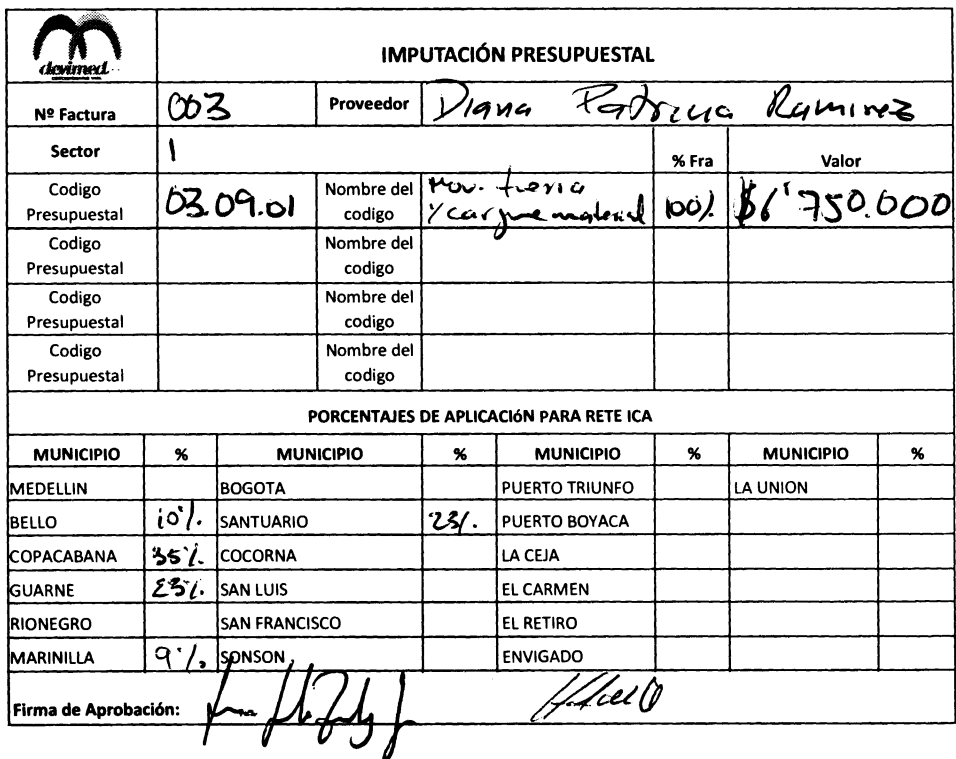 devimed
IMPUTACIÓN PRESUPUESTAL
Nº Factura 003 Proveedor Diana Patricia Ramirez
Sector 1 % Fra Valor
Codigo Presupuestal 03.09.01 Nombre del codigo Mov. tierra y cargue material 100% $6'750.000
Codigo Presupuestal Nombre del codigo
Codigo Presupuestal Nombre del codigo
Codigo Presupuestal Nombre del codigo
PORCENTAJES DE APLICACIÓN PARA RETE ICA
MUNICIPIO % MUNICIPIO % MUNICIPIO % MUNICIPIO %
MEDELLIN BOGOTA PUERTO TRIUNFO LA UNION
BELLO 10% SANTUARIO 23% PUERTO BOYACA
COPACABANA 35% COCORNA LA CEJA
GUARNE 23% SAN LUIS EL CARMEN
RIONEGRO SAN FRANCISCO EL RETIRO
MARINILLA 9% SONSON ENVIGADO
Firma de Aprobación: